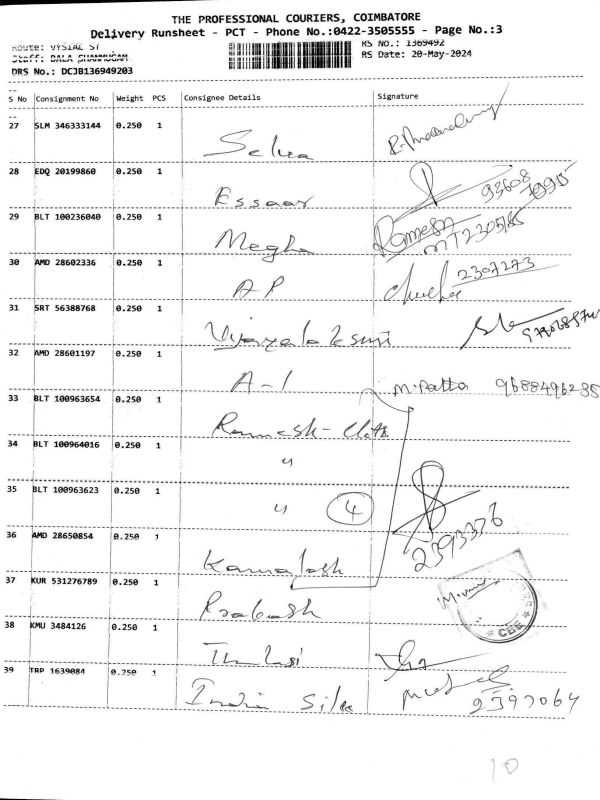 THE PROFESSIONAL COURIERS, COIMBATORE
Delivery Runsheet - PCT - Phone No.:0422-3505555 - Page No.:3
Route: VYSIAL ST
RS No.: 1369492
Staff: BALA SHANMUGAM
RS Date: 20-May-2024
DRS No.: DCJB136949203
S No Consignment No Weight PCS Consignee Details Signature
27 SLM 346333144 0.250 1
Selva
28 EDQ 20199860 0.250 1
Essaar 93608
29 BLT 100236040 0.250 1
Megha Ramesh
30 AMD 28602336 0.250 1
AP 2307273
31 SRT 56388768 0.250 1
Vijayalaksmi
32 AMD 28601197 0.250 1
A-1 9688496285
33 BLT 100963654 0.250 1
Ramesh
34 BLT 100964016 0.250 1
"
35 BLT 100963623 0.250 1
" 4
36 AMD 28650854 0.250 1
Kamalesh 2393376
37 KUR 531276789 0.250 1
Prakash
38 KMU 3484126 0.250 1
CBE
Thulasi
39 TRP 1639084 0.250 1
India Silk 2397064
10